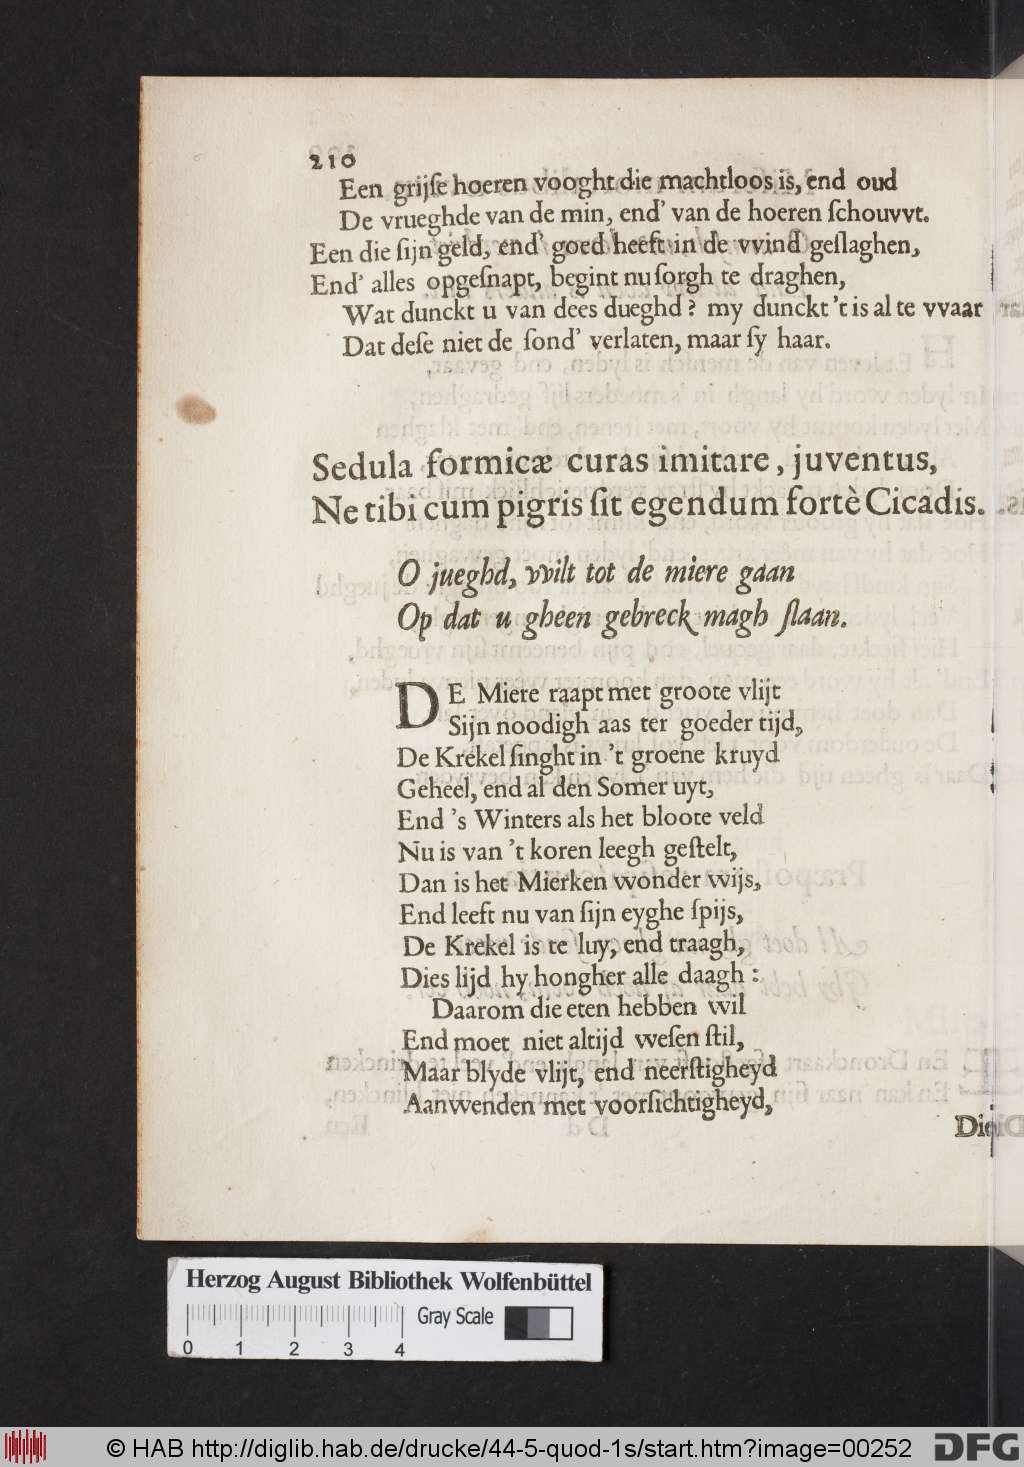 210
Een grijſe hoeren vooght die machtloos is, end oud
De vrueghde van de min, end' van de hoeren ſchouvvt.
Een die ſijn geld, end' goed heeft in de vvind geſlaghen,
End' alles opgeſnapt, begint nu ſorgh te draghen,
Wat dunckt u van dees dueghd? my dunckt 't is al te vvaar
Dat deſe niet de ſond' verlaten, maar ſy haar.
Sedula formicæ curas imitare, juventus,
Ne tibi cum pigris ſit egendum fortè Cicadis.
O jueghd, vvilt tot de miere gaan
Op dat u gheen gebreck magh ſlaan.
DE Miere raapt met groote vlijt
Sijn noodigh aas ter goeder tijd,
De Krekel ſinght in 't groene kruyd
Geheel, end al den Somer uyt,
End 's Winters als het bloote veld
Nu is van 't koren leegh geſtelt,
Dan is het Mierken wonder wijs,
End leeft nu van ſijn eyghe ſpijs,
De Krekel is te luy, end traagh,
Dies lijd hy hongher alle daagh:
Daarom die eten hebben wil
End moet niet altijd weſen ſtil,
Maar blyde vlijt, end neerſtigheyd
Aanwenden met voorſichtigheyd,
Herzog August Bibliothek Wolfenbüttel
Gray Scale
0 1 2 3 4
© HAB http://diglib.hab.de/drucke/44-5-quod-1s/start.htm?image=00252
DFG